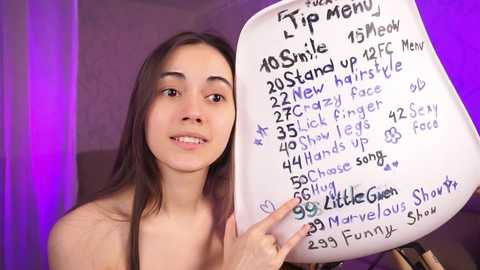 Tip Menu
10 Smile 15 Meow
20 Stand up 12 FC Menu
22 New hairstyle
27 Crazy face
35 Lick finger
40 Show legs 42 Sexy face
44 Hands up
50 Choose song
56 Hug
99 Little Gwen
199 Marvelous Show
299 Funny Show